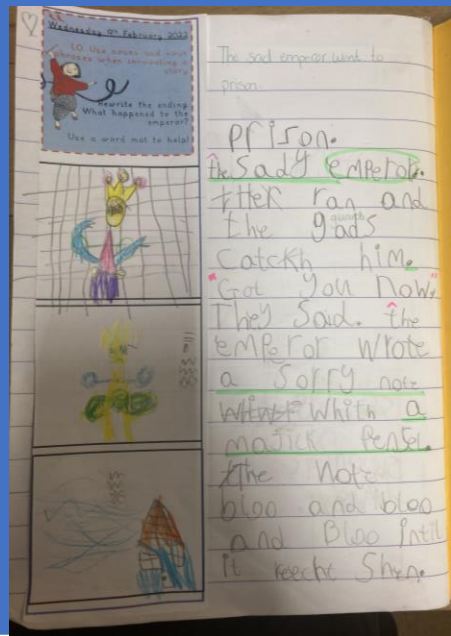 Wednesday 9th February 2022
LO. Use nouns and noun
phrases when innovating a
story
Rewrite the ending.
What happened to the
emperor?
Use a word mat to help!
The sad emperor went to
prison.
prison.
the sady emperor.
then ran and
the gads guards
catckh him.
"Got you now"
They said. the
emperor wrote
a sorry note
whith a
majick pensel.
the note
bloo and bloo
and Bloo intil
it reecht Shen.